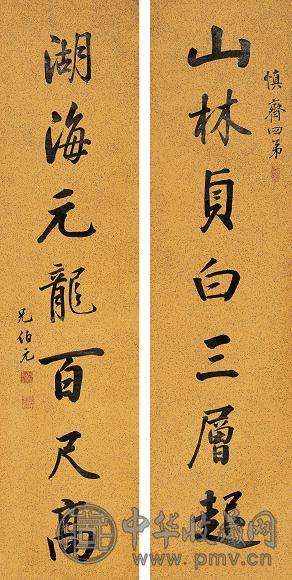 慎齋四弟
山林貞白三層起
湖海元龍百尺高
兄伯元
中华收藏网
www.pmv.cn